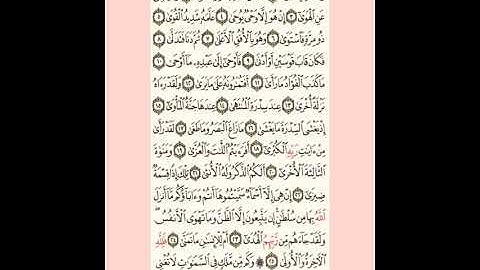 عَنِ ٱلْهَوَىٰٓ ٣ إِنْ هُوَ إِلَّا وَحْىٌ يُوحَىٰ ٤ عَلَّمَهُۥ شَدِيدُ ٱلْقُوَىٰ ٥
ذُو مِرَّةٍ فَٱسْتَوَىٰ ٦ وَهُوَ بِٱلْأُفُقِ ٱلْأَعْلَىٰ ٧ ثُمَّ دَنَا فَتَدَلَّىٰ ٨
فَكَانَ قَابَ قَوْسَيْنِ أَوْ أَدْنَىٰ ٩ فَأَوْحَىٰٓ إِلَىٰ عَبْدِهِۦ مَآ أَوْحَىٰ ١٠
مَا كَذَبَ ٱلْفُؤَادُ مَا رَأَىٰٓ ١١ أَفَتُمَٰرُونَهُۥ عَلَىٰ مَا يَرَىٰ ١٢ وَلَقَدْ رَءَاهُ
نَزْلَةً أُخْرَىٰ ١٣ عِندَ سِدْرَةِ ٱلْمُنتَهَىٰ ١٤ عِندَهَا جَنَّةُ ٱلْمَأْوَىٰٓ ١٥
إِذْ يَغْشَى ٱلسِّدْرَةَ مَا يَغْشَىٰ ١٦ مَا زَاغَ ٱلْبَصَرُ وَمَا طَغَىٰ ١٧ لَقَدْ رَأَىٰ
مِنْ ءَايَٰتِ رَبِّهِ ٱلْكُبْرَىٰٓ ١٨ أَفَرَءَيْتُمُ ٱللَّٰتَ وَٱلْعُزَّىٰ ١٩ وَمَنَوٰةَ
ٱلثَّالِثَةَ ٱلْأُخْرَىٰٓ ٢٠ أَلَكُمُ ٱلذَّكَرُ وَلَهُ ٱلْأُنثَىٰ ٢١ تِلْكَ إِذًا قِسْمَةٌ
ضِيزَىٰٓ ٢٢ إِنْ هِىَ إِلَّآ أَسْمَآءٌ سَمَّيْتُمُوهَآ أَنتُمْ وَءَابَآؤُكُم مَّآ أَنزَلَ
ٱللَّهُ بِهَا مِن سُلْطَٰنٍ إِن يَتَّبِعُونَ إِلَّا ٱلظَّنَّ وَمَا تَهْوَى ٱلْأَنفُسُ
وَلَقَدْ جَآءَهُم مِّن رَّبِّهِمُ ٱلْهُدَىٰٓ ٢٣ أَمْ لِلْإِنسَٰنِ مَا تَمَنَّىٰ ٢٤ فَلِلَّهِ
ٱلْءَاخِرَةُ وَٱلْأُولَىٰ ٢٥ ۞ وَكَم مِّن مَّلَكٍ فِى ٱلسَّمَٰوَٰتِ لَا تُغْنِى